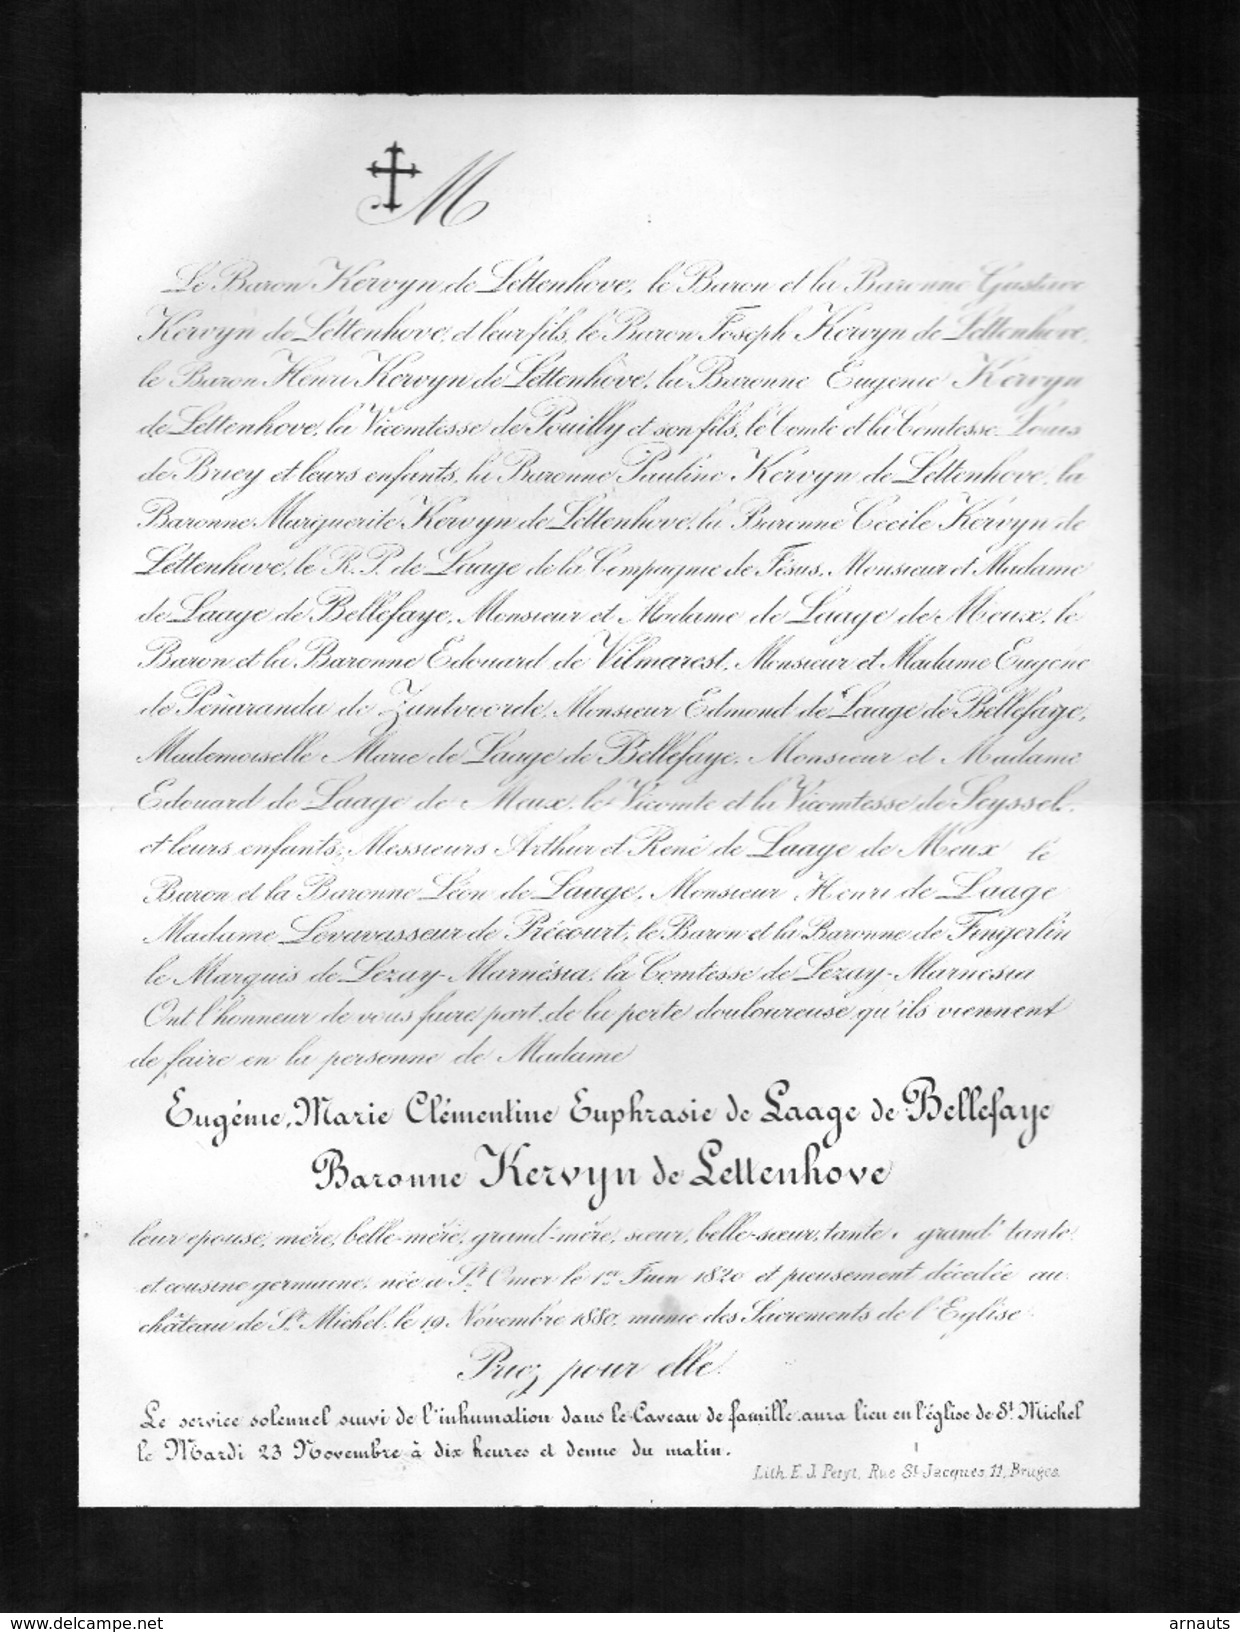 M
Le Baron Kervyn de Lettenhove, le Baron et la Baronne Gustave
Kervyn de Lettenhove, et leur fils, le Baron Joseph Kervyn de Lettenhove,
le Baron Henri Kervyn de Lettenhove, la Baronne Eugénie Kervyn
de Lettenhove, la Vicomtesse de Pouilly et son fils, le Comte et la Comtesse Louis
de Briey et leurs enfants, la Baronne Pauline Kervyn de Lettenhove, la
Baronne Marguerite Kervyn de Lettenhove, la Baronne Cécile Kervyn de
Lettenhove, le R. P. de Laage de la Compagnie de Jésus, Monsieur et Madame
de Laage de Bellefaye, Monsieur et Madame de Laage de Meux, le
Baron et la Baronne Edouard de Vilmarest, Monsieur et Madame Eugène
de Peñaranda de Zantvoorde, Monsieur Edmond de Laage de Bellefaye,
Mademoiselle Marie de Laage de Bellefaye, Monsieur et Madame
Edouard de Laage de Meux, le Vicomte et la Vicomtesse de Seyssel,
et leurs enfants, Messieurs Arthur et René de Laage de Meux le
Baron et la Baronne Léon de Laage, Monsieur Henri de Laage
Madame Levavasseur de Précourt, le Baron et la Baronne de Fingerlin
le Marquis de Lezay-Marnésia, la Comtesse de Lezay-Marnésia
Ont l'honneur de vous faire part de la perte douloureuse qu'ils viennent
de faire en la personne de Madame
Eugénie, Marie Clémentine Euphrasie de Laage de Bellefaye
Baronne Kervyn de Lettenhove
leur épouse, mère, belle-mère, grand'-mère, sœur, belle-sœur, tante, grand' tante
et cousine germaine, née à St. Omer le 1er Juin 1820 et pieusement décédée au
château de St. Michel, le 19 Novembre 1880, munie des Sacrements de l'Eglise.
Priez pour elle.
Le service solennel suivi de l'inhumation dans le Caveau de famille aura lieu en l'église de St. Michel
le Mardi 23 Novembre à dix heures et demie du matin.
Lith. E. J. Petyt, Rue St. Jacques 11, Bruges.
www.delcampe.net
arnauts